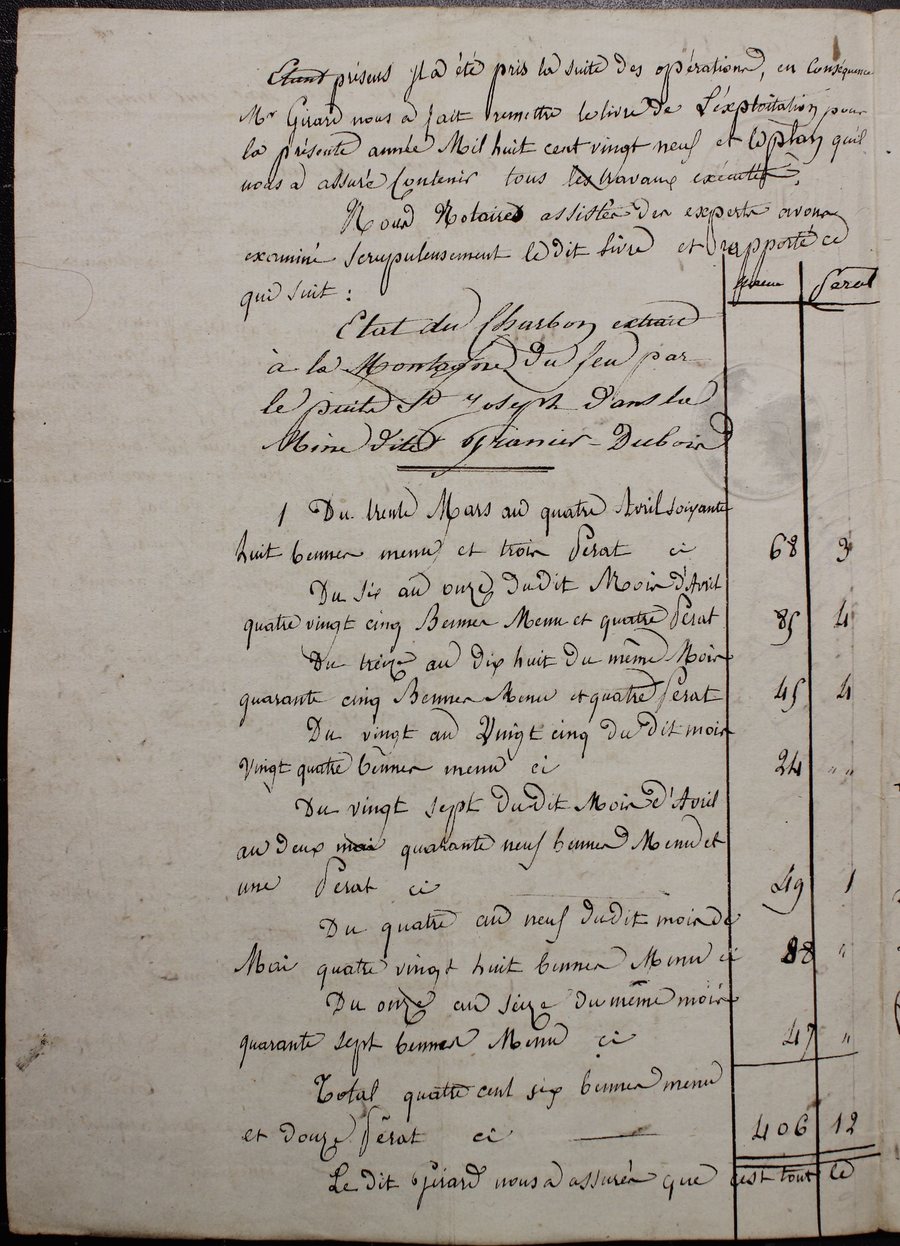 Etant présens il a été pris la suite des opérations, en conséquence
Mr Girard nous a fait remettre le livre de L'éxploitation pour
la présente année Mil huit cent vingt neuf et le plan qu'il
nous a assuré Contenir tous les travaux exécutés.
Nous Notaires assistés des experts avons
examiné scrupuleusement le dit livre et rapporté ce
qui suit :
Menu Perat
Etat du Charbon extrait
à la Montagne du feu par
le puits St Joseph dans la
Mine dite Granier-Dubois
1 Du trente Mars au quatre Avril soixante
huit bennes menu et trois Perat ci 68 3
Du six au onze du dit Mois d'Avril
quatre vingt cinq Bennes Menu et quatre Perat 85 4
Du treize au dix huit du même Mois
quarante cinq Bennes Menu et quatre Perat 45 4
Du vingt au Vingt cinq du dit mois
Vingt quatre bennes menu ci 24 " "
Du vingt sept du dit Mois d'Avril
au deux mai quarante neuf bennes Menu et
une Perat ci 49 1
Du quatre au neuf du dit mois de
Mai quatre vingt huit bennes Menu ci 88 "
Du onze au seize du même mois
quarante sept bennes Menu ci 47 "
Total quatre cent six bennes menu
et douze Pérat ci 406 12
Le dit Girard nous a assurés que c'est tout le